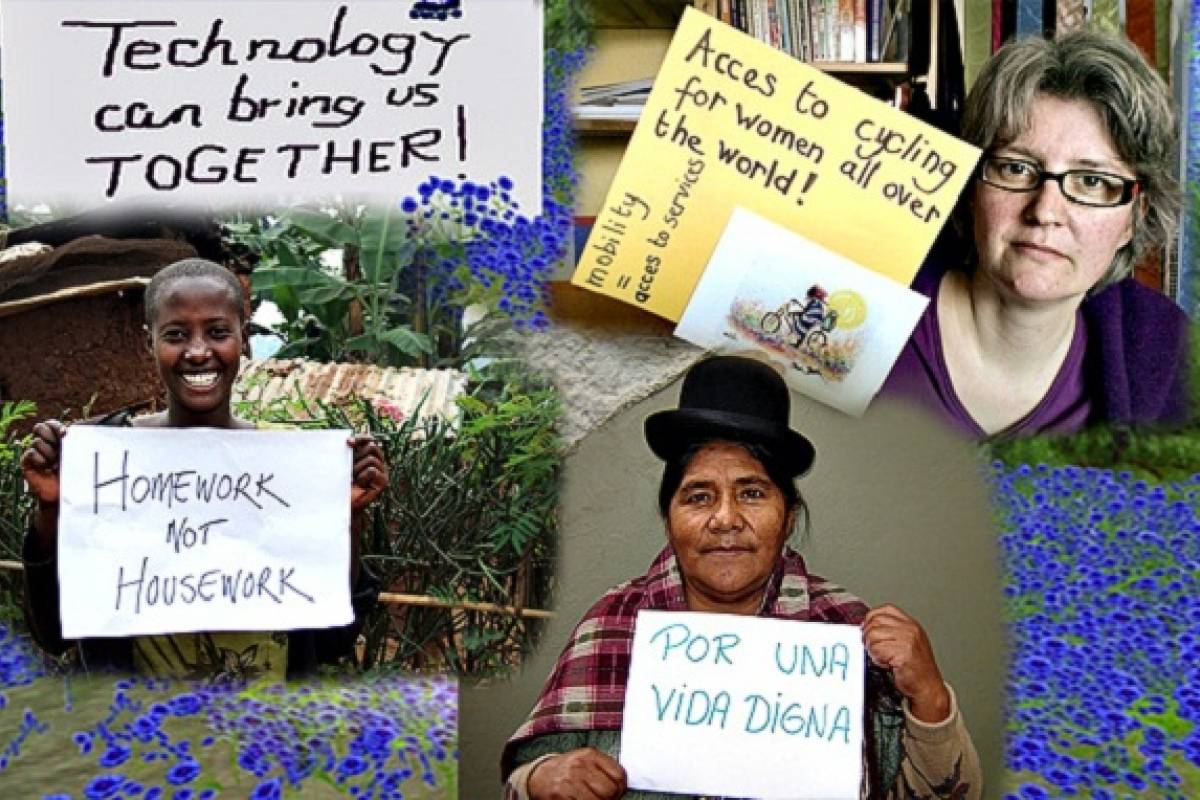 Technology
can bring us
TOGETHER!
Acces to cycling
for women all over
the world!
mobility
=
acces to services
HOMEWORK
NOT
HOUSEWORK
POR UNA
VIDA DIGNA